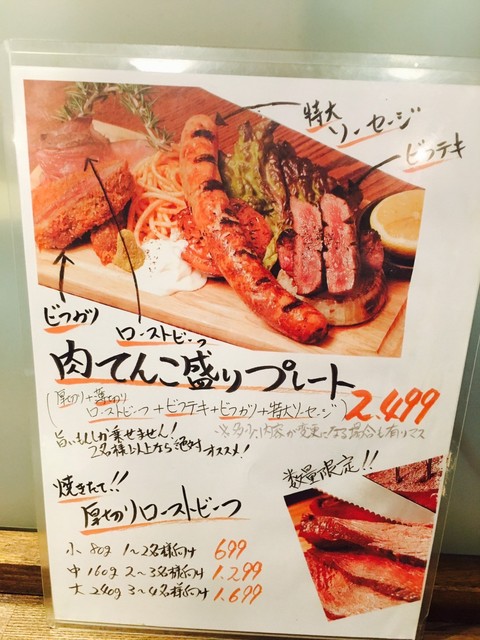 特大
ソーセージ
ビフテキ
ビフカツ
ローストビーフ
肉てんこ盛りプレート
(厚切り+薄切り
ローストビーフ+ビフテキ+ビフカツ+特大ソーセージ) 2,499
旨いもんしか乗せません!
2名様以上なら絶対
オススメ!
※多少、内容が変更になる場合も有りマス
数量限定!!
焼きたて!!
厚切りローストビーフ
小 80g 1〜2名様向け 699
中 160g 2〜3名様向け 1,299
大 240g 3〜4名様向け 1,699